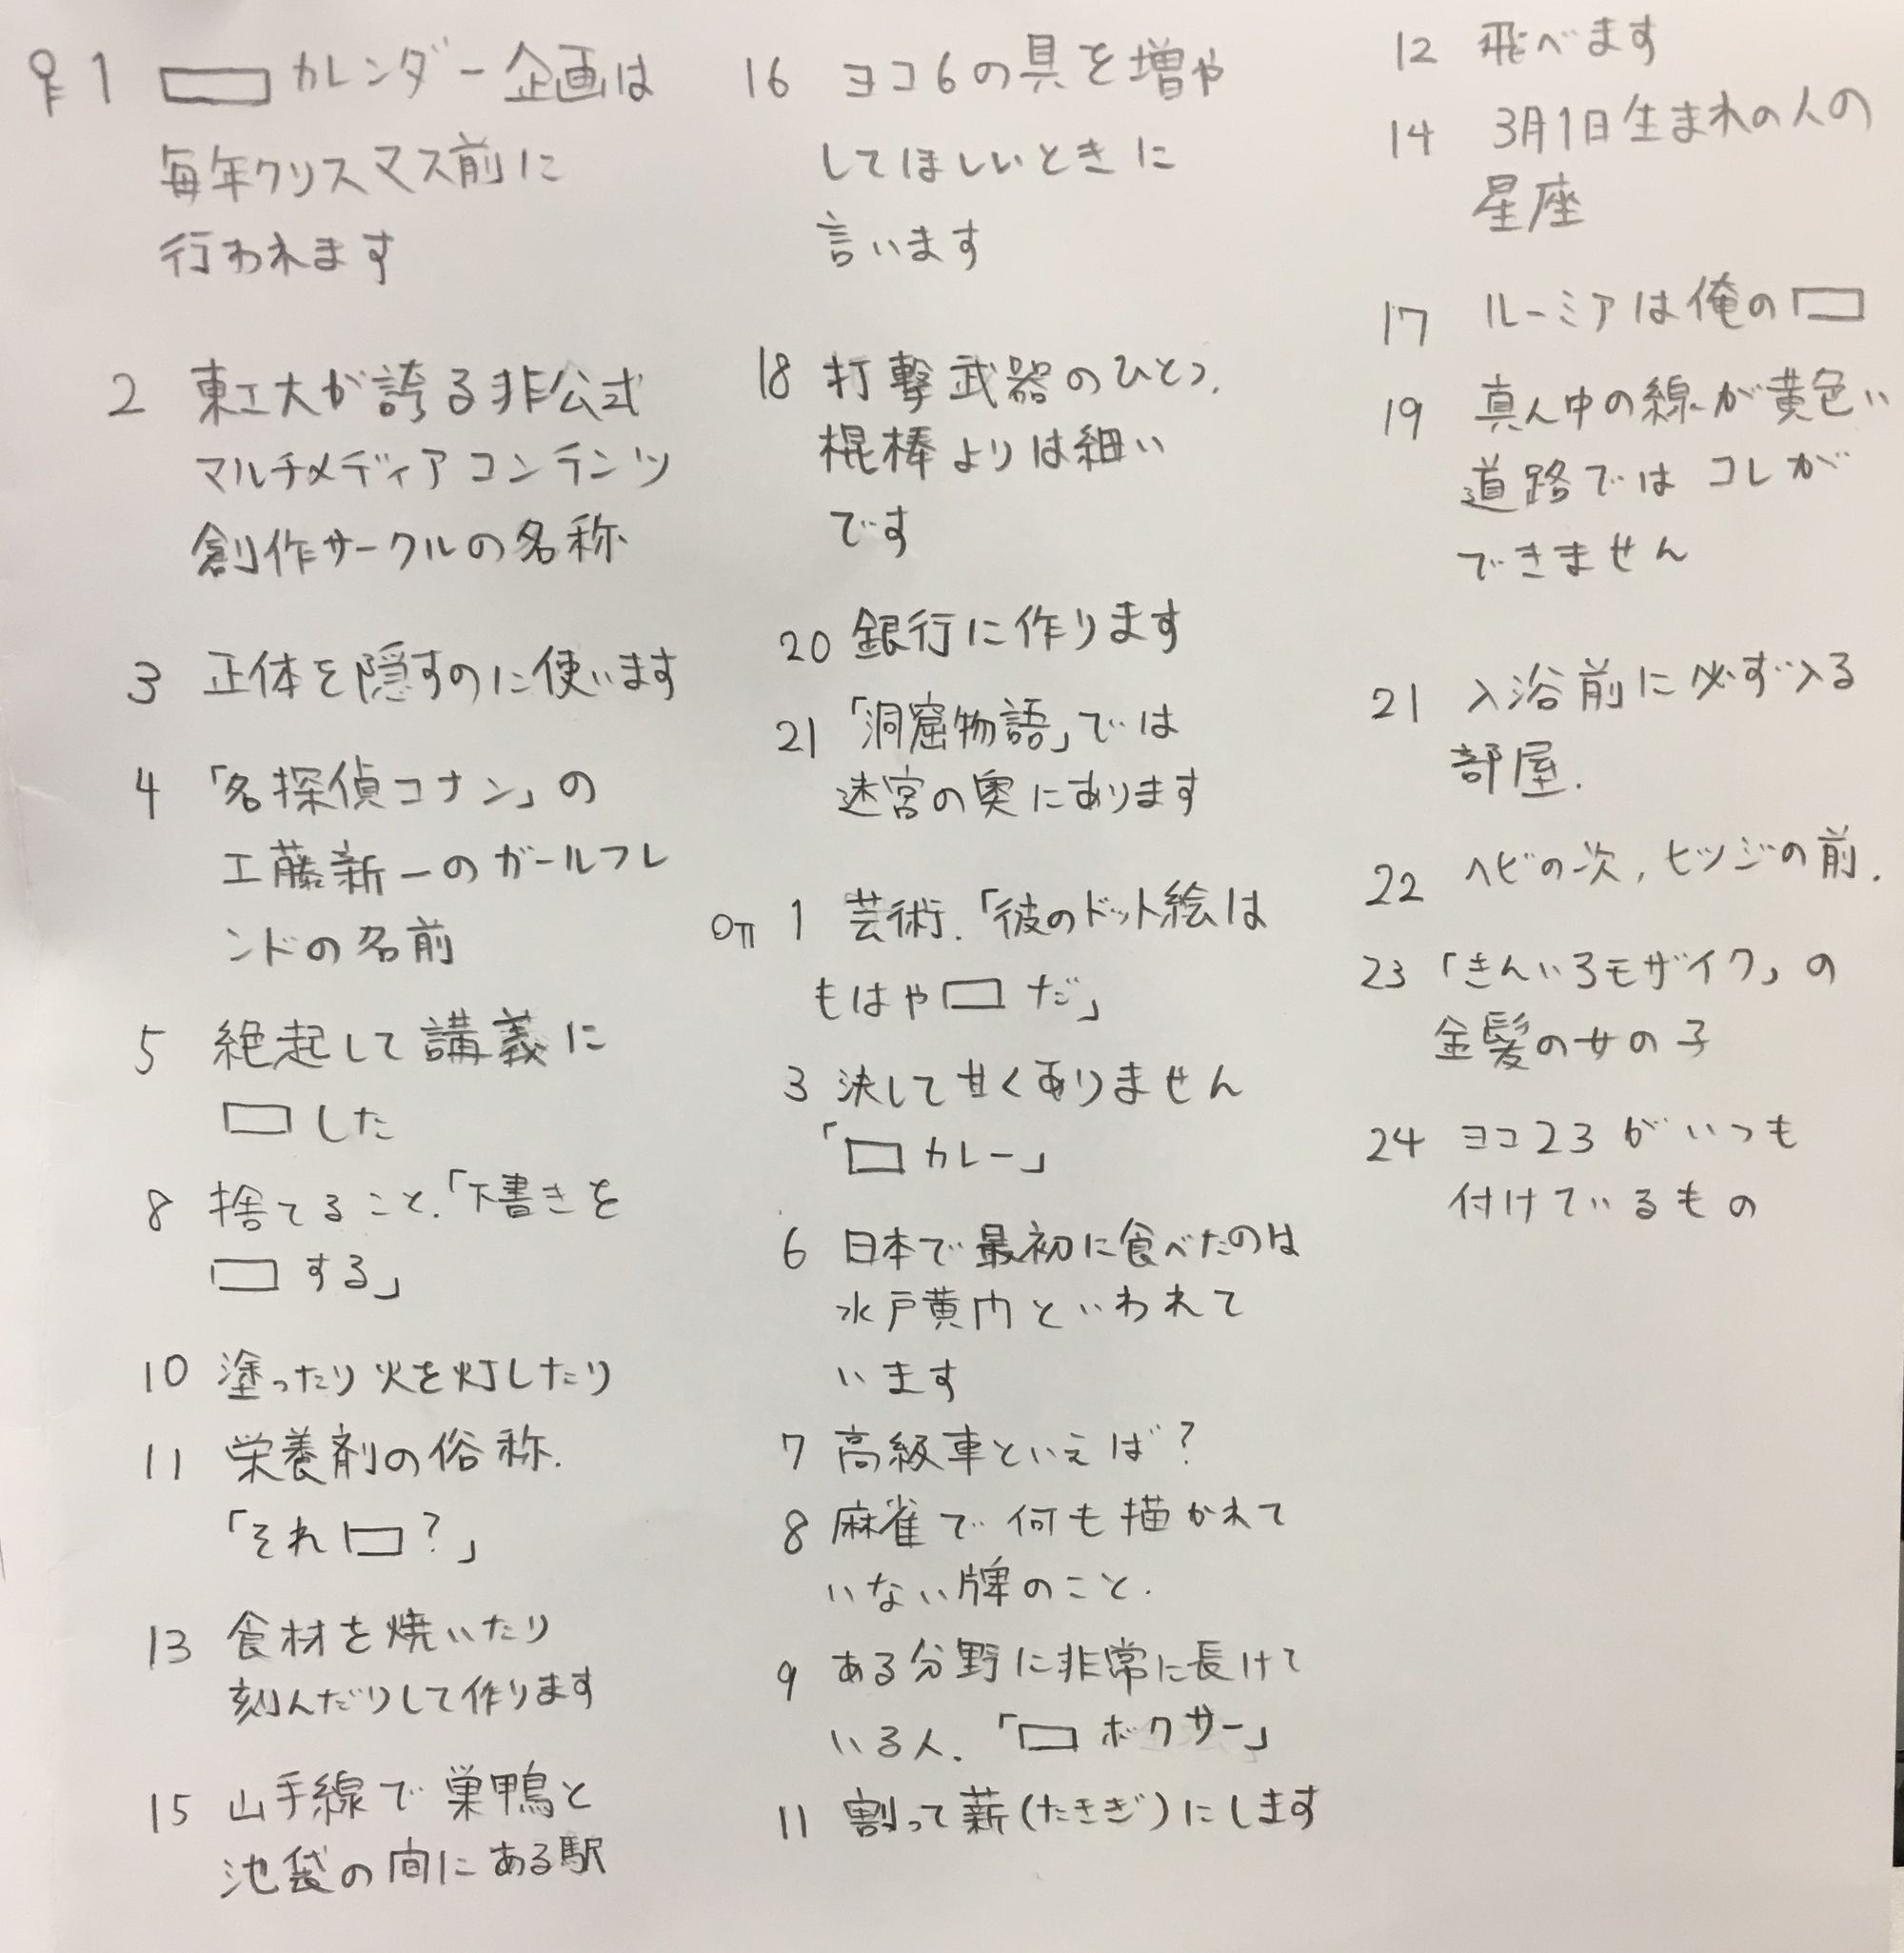 タテ 1 □ カレンダー企画は
毎年クリスマス前に
行われます
2 東工大が誇る非公式
マルチメディアコンテンツ
創作サークルの名称
3 正体を隠すのに使います
4 「名探偵コナン」の
工藤新一のガールフレ
ンドの名前
5 絶起して講義に
□した
8 捨てること.「下書きを
□する」
10 塗ったり火を灯したり
11 栄養剤の俗称.
「それ□?」
13 食材を焼いたり
刻んだりして作ります
15 山手線で巣鴨と
池袋の間にある駅
16 ヨコ6の具を増や
してほしいときに
言います
18 打撃武器のひとつ.
棍棒よりは細い
です
20 銀行に作ります
21 「洞窟物語」では
迷宮の奥にあります
ヨコ 1 芸術.「彼のドット絵は
もはや□だ」
3 決して甘くありません
「□カレー」
6 日本で最初に食べたのは
水戸黄門といわれて
います
7 高級車といえば?
8 麻雀で何も描かれて
いない牌のこと.
9 ある分野に非常に長けて
いる人.「□ボクサー」
11 割って薪(たきぎ)にします
12 飛べます
14 3月1日生まれの人の
星座
17 ルーミアは俺の□
19 真ん中の線が黄色い
道路ではコレが
できません
21 入浴前に必ず入る
部屋.
22 ヘビの次,ヒツジの前.
23 「きんいろモザイク」の
金髪の女の子
24 ヨコ23がいつも
付けているもの